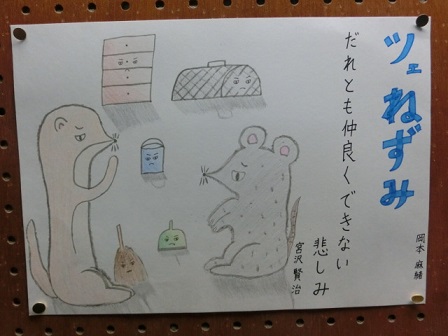 ツェねずみ
だれとも仲良くできない
悲しみ
宮沢賢治
岡本麻緒